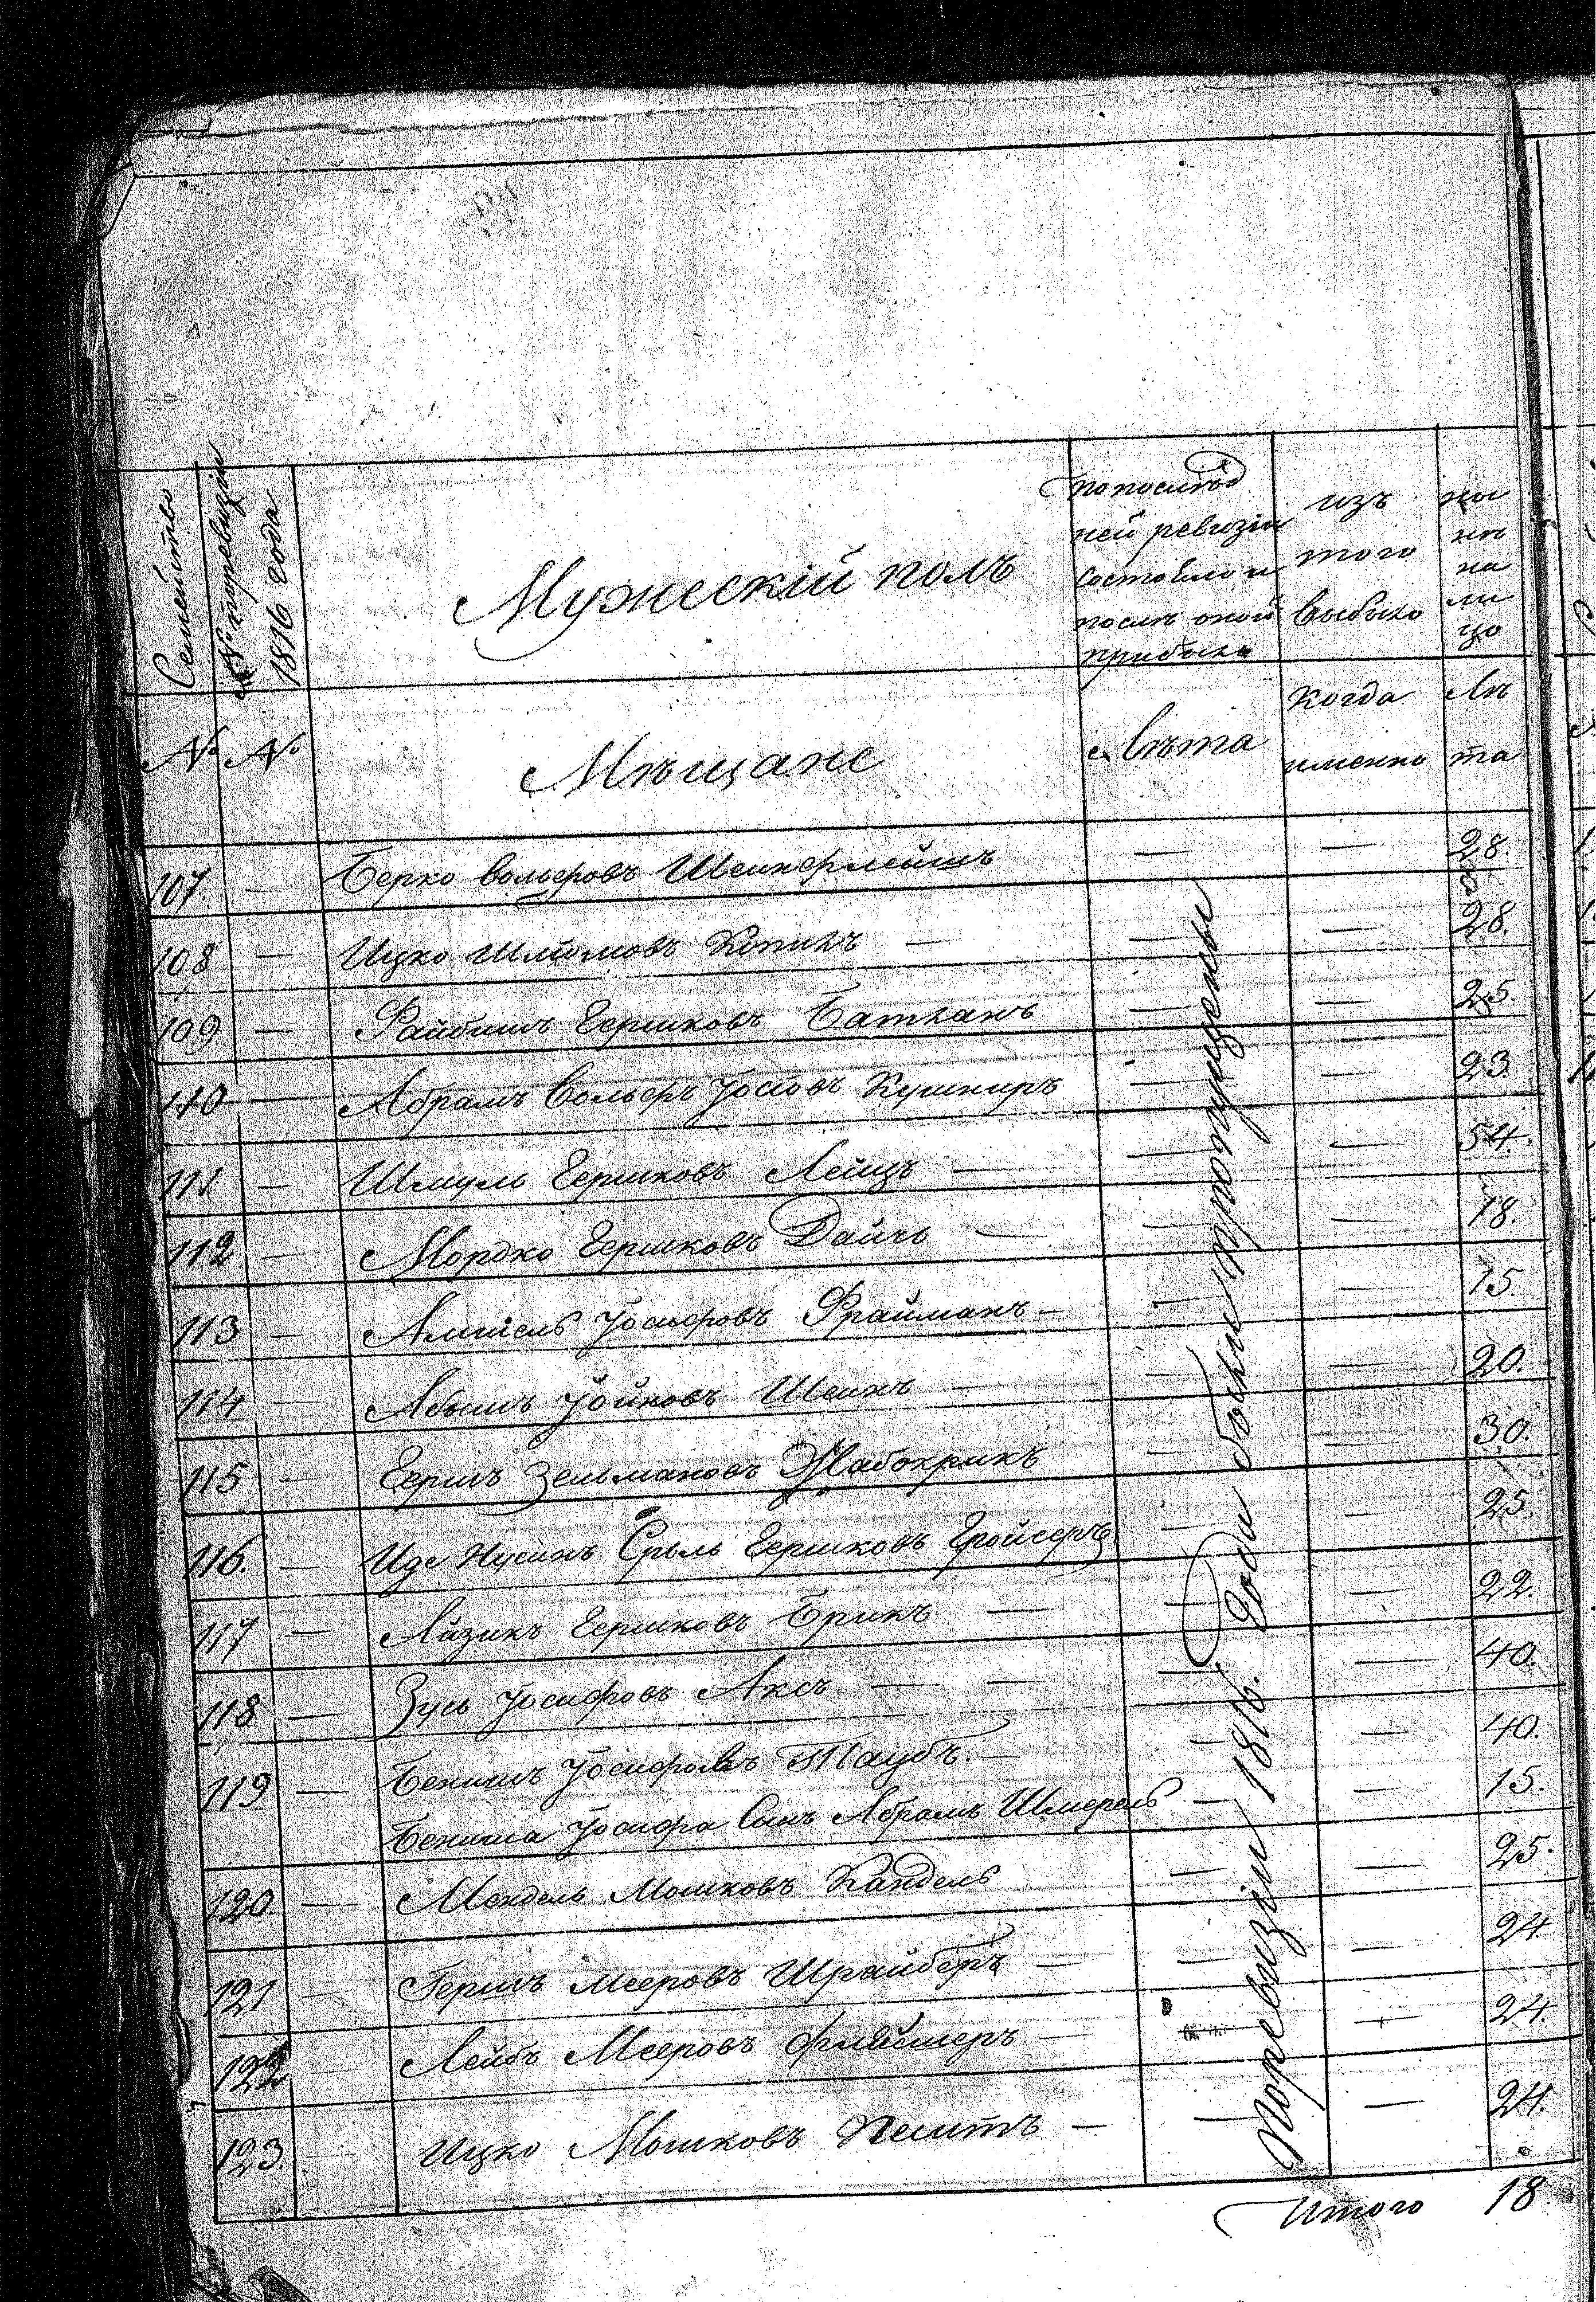 Семейство
№ по ревизіи
1816 года
Мужескій полъ
по послѣд
ней ревизіи
состояло и
послѣ оной
прибыло
изъ
того
выбыло
ны
нѣ
на
ли
цо
№ №
Мѣщане
Лѣта
когда
именно
Лѣ
та
107. — Берко Вольфовъ Шеинфлейшъ — — 28.
108 — Ицко Шлiомовъ — — — 28.
109 — Файбишъ Гершковъ Батханъ — — 25.
110 — Абрамъ Вольфъ Іосіовъ Кушниръ — — 23.
111 — Шмуль Гершковъ Лейцъ — — — 54.
112 — Мордко Гершковъ Дайчъ — — — 18.
113 — Іосьфовъ Фрайманъ — — — 15.
114 — Абышъ Іойновъ Шеинъ — — — 20.
115 — Гершъ Зельмановъ Жабокрикъ — — 30.
116. — Иде Нусинъ Сруль Гершковъ Гройсеръ — — 25
117 — Айзикъ Гершковъ Брикъ — — — 22.
118 — Зусь Іосифовъ Аксъ — — — — 40.
119 — Бенишъ Іосифовъ Таубъ. — — — 40.
Бениша Іосифа Сынъ Абрамъ Шмерель — — 15.
120 — Мендель Мошковъ Кандель — — 25.
121 — Гершъ Мееровъ Шрайберъ — — — 24
122 — Лейбъ Мееровъ Флейшеръ — — — 24.
123. Ицко Мошковъ — — — 24.
По ревизіи 1816. Года были пропущены
Итого 18